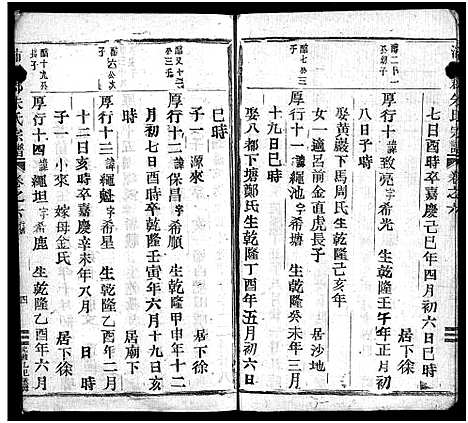 七日酉時卒嘉慶己巳年四月初六日巳時
厚行十諱致亮字希光 生乾隆壬午年正月初
八日子時
娶黃巖下馬周氏生乾隆己亥年
女一適呂前金直虎長子 居沙地
厚行十一諱繩池字希塘 生乾隆癸未年三月
十九日巳時
娶八都下塘鄭氏生乾隆丁酉年五月初六日
巳時
子一 源來 居下徐
厚行十二諱保昌字希順 生乾隆甲申年十二
月初七日酉時卒乾隆壬寅年六月十九日亥
時 居廟下
厚行十三諱繩魁字希星 生乾隆乙酉年二月
十二日亥時卒嘉慶辛未年八月 日 時
子一 小來 嫁母金氏 居下徐
厚行十四諱繩坦字希鹿 生乾隆乙酉年六月
朱氏宗譜 卷之六
四